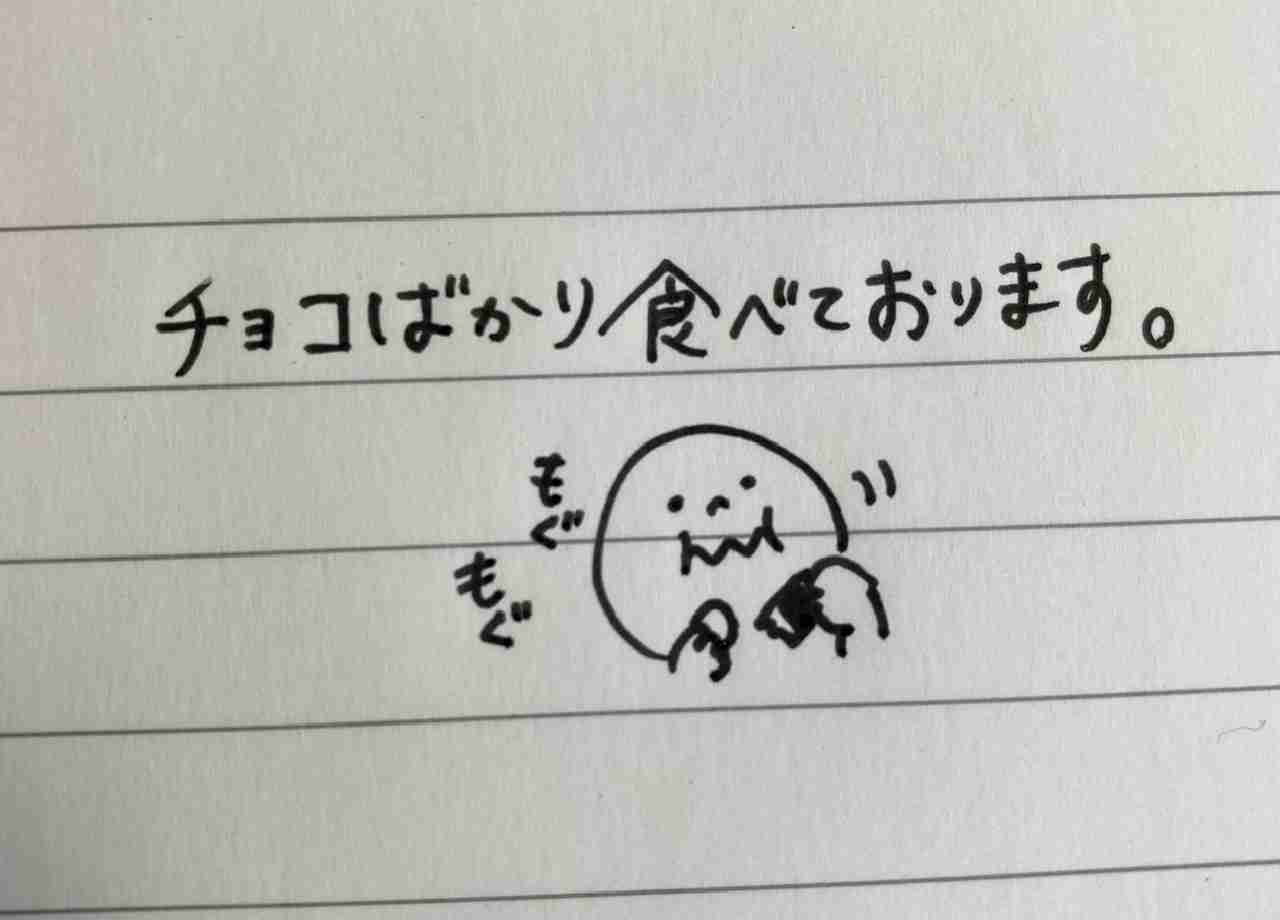 チョコばかり食べております。
もぐ
もぐ